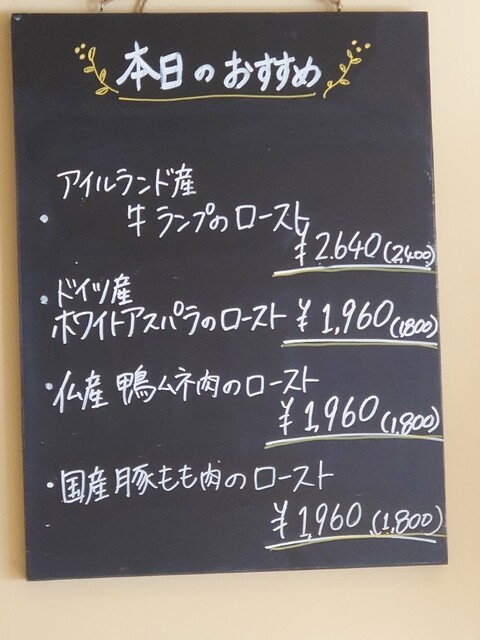 本日のおすすめ
・アイルランド産
牛ランプのロースト
¥2.640(2,400)
・ドイツ産
ホワイトアスパラのロースト ¥1,960(1,800)
・仏産 鴨ムネ肉のロースト
¥1,960(1,800)
・国産豚もも肉のロースト
¥1,960(1,800)